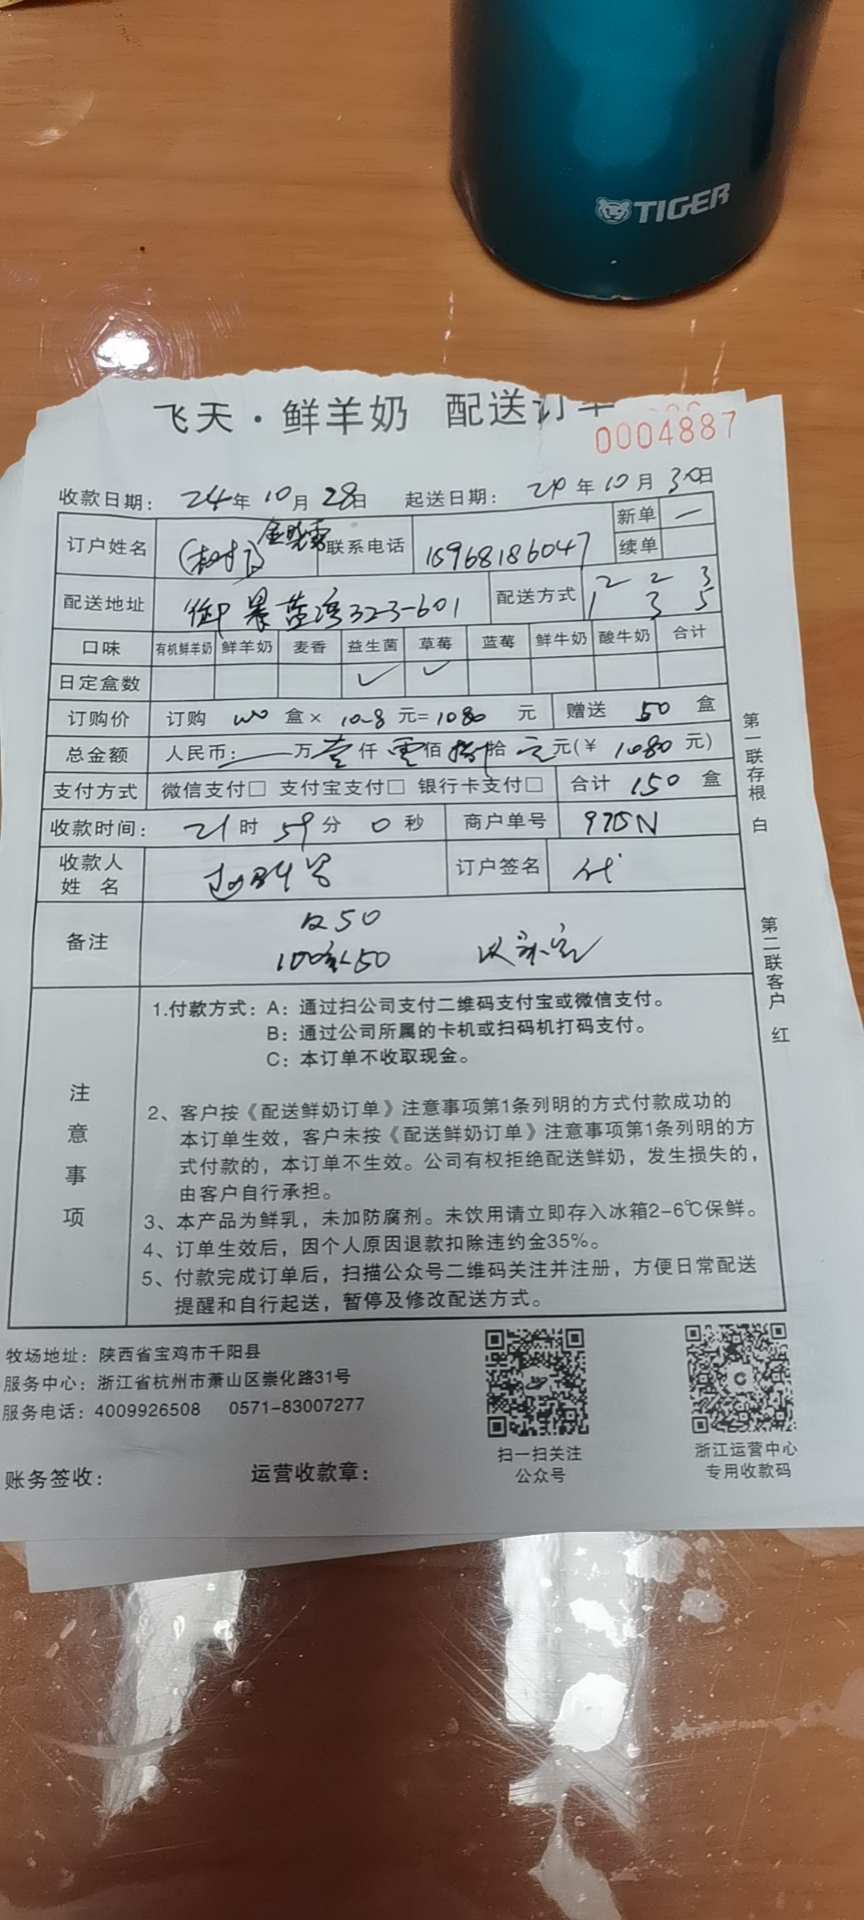 TIGER
飞天·鲜羊奶 配送订单
0004887
收款日期: 24年10月28日 起送日期: 24年10月30日
订户姓名 联系电话 15968186047 新单 一
续单
配送地址 323-601 配送方式 2 2 3
1 3 5
口味 有机鲜羊奶 鲜羊奶 麦香 益生菌 草莓 蓝莓 鲜牛奶 酸牛奶 合计
日定盒数 ✓ ✓
订购价 订购 100 盒× 10.8 元=1080 元 赠送 50 盒
总金额 人民币: 万壹仟零佰捌拾元元(¥ 1080元)
支付方式 微信支付□ 支付宝支付□ 银行卡支付□ 合计 150 盒
收款时间: 21时59分0秒 商户单号
收款人
姓 名 订户签名 代
备注 50
100 50
注意事项
1.付款方式: A: 通过扫公司支付二维码支付宝或微信支付。
B: 通过公司所属的卡机或扫码机打码支付。
C: 本订单不收取现金。
2、客户按《配送鲜奶订单》注意事项第1条列明的方式付款成功的
本订单生效，客户未按《配送鲜奶订单》注意事项第1条列明的方
式付款的，本订单不生效。公司有权拒绝配送鲜奶，发生损失的，
由客户自行承担。
3、本产品为鲜乳，未加防腐剂。未饮用请立即存入冰箱2-6℃保鲜。
4、订单生效后，因个人原因退款扣除违约金35%。
5、付款完成订单后，扫描公众号二维码关注并注册，方便日常配送
提醒和自行起送，暂停及修改配送方式。
第一联存根 白
第二联客户 红
牧场地址: 陕西省宝鸡市千阳县
服务中心: 浙江省杭州市萧山区崇化路31号
服务电话: 4009926508 0571-83007277
扫一扫关注
公众号
浙江运营中心
专用收款码
账务签收: 运营收款章: